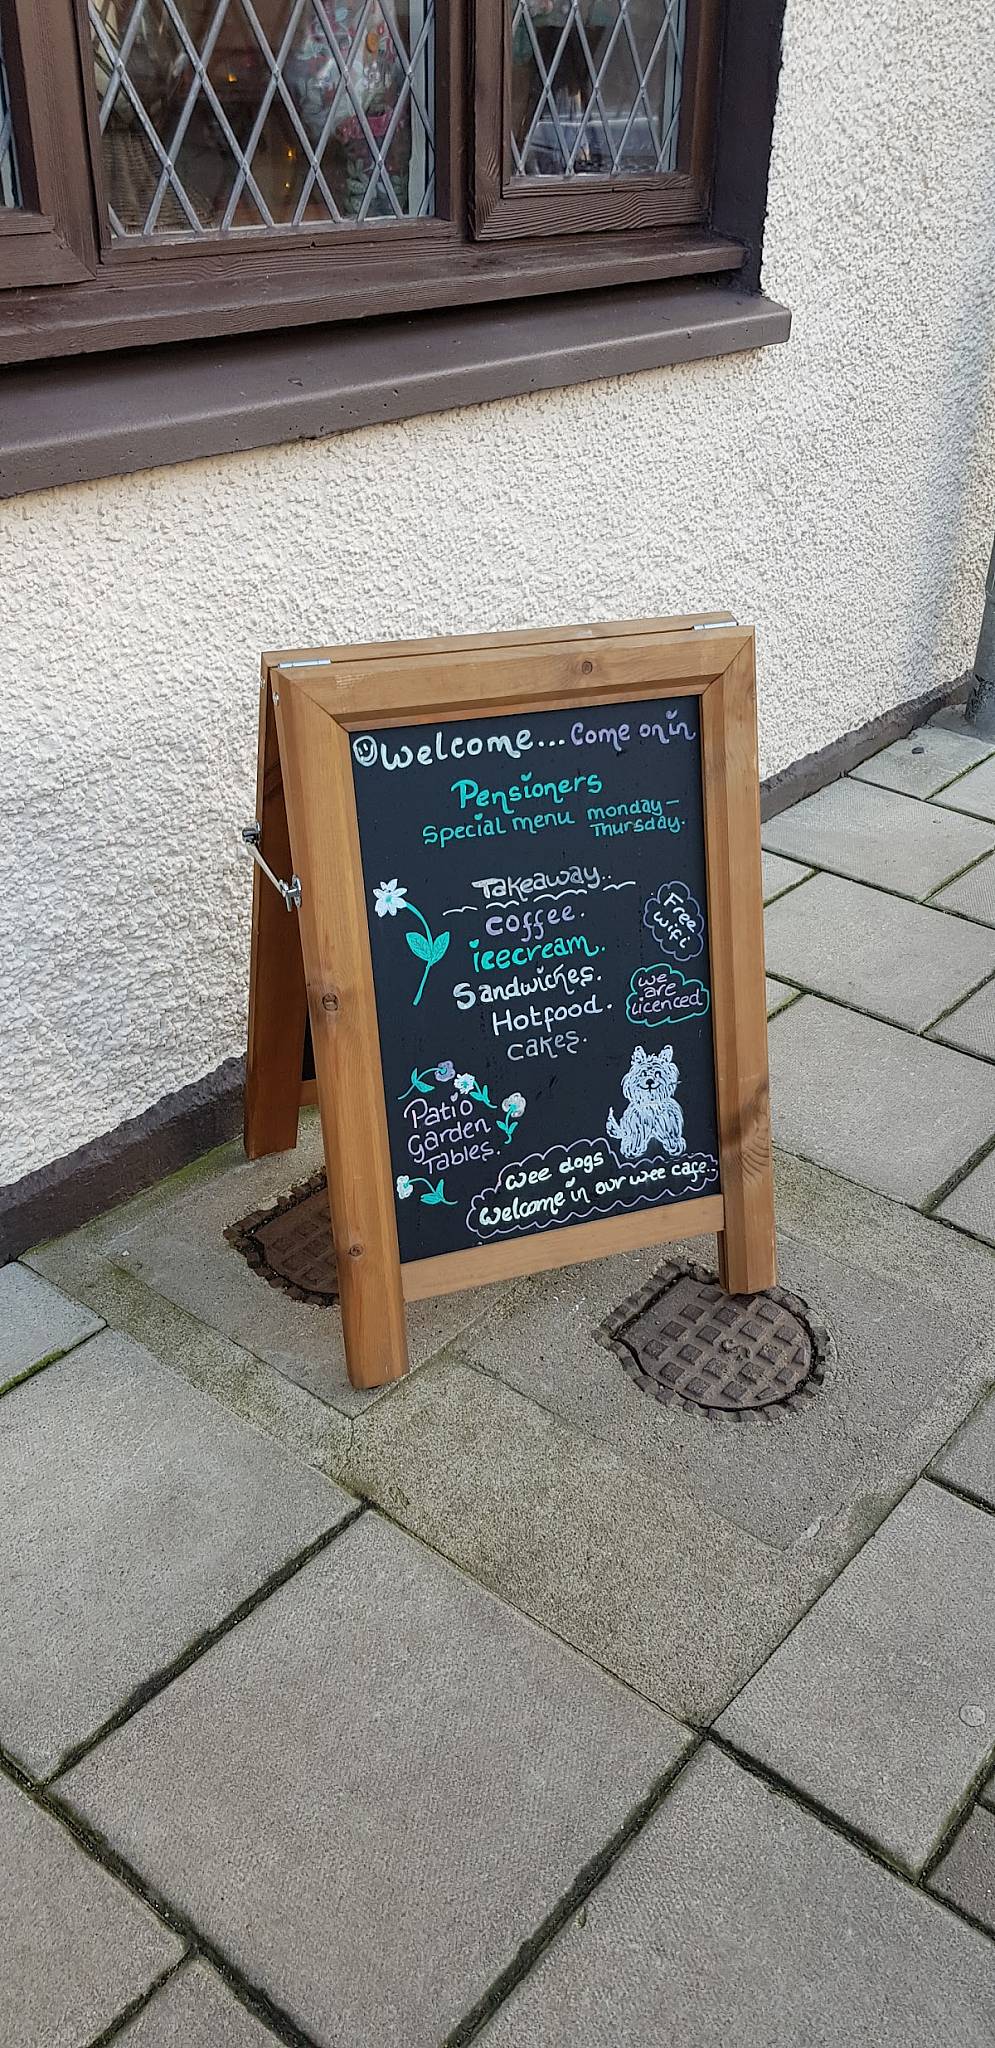 Welcome... Come on in
Pensioners
Special menu monday -
Thursday.
Takeaway..
coffee.
icecream.
Sandwiches.
Hotfood.
cakes.
Free
wifi
we
are
Licenced
Patio
Garden
Tables.
wee dogs
Welcome in our wee cafe..